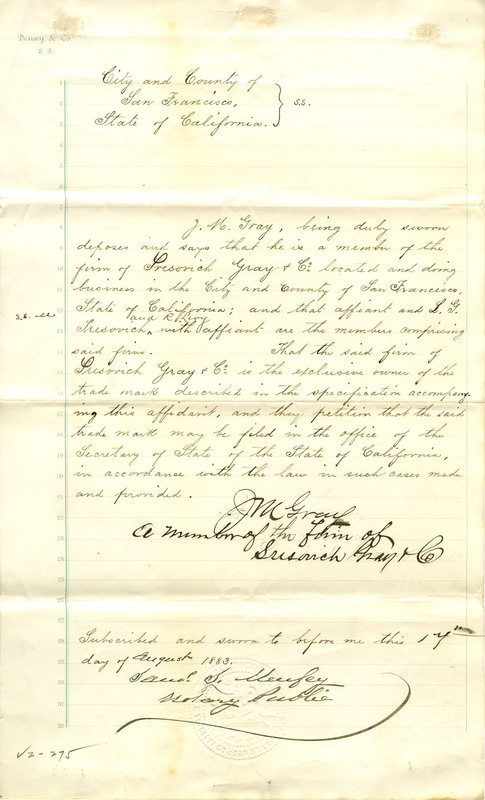 Dewey & Co.
S. F.
City and County of
San Francisco, } S.S.
State of California.
J. M. Gray, being duly sworn
deposes and says that he is a member of the
firm of Sresovich Gray & Co. located and doing
business in the City and County of San Francisco,
State of California; and that affiant and L. G.
Sresovich, with affiant are the members comprising
said firm. That the said firm of
Sresovich Gray & Co. is the exclusive owner of the
trade mark described in the specification accompany
ing this affidavit, and they petition that the said
trade mark may be filed in the office of the
Secretary of State of the State of California,
in accordance with the law in such cases made
and provided.
J M Gray
A member of the Firm of
Sresovich Gray & Co
Subscribed and sworn to before me this 17th
day of August 1883.
Notary Public
V2-295